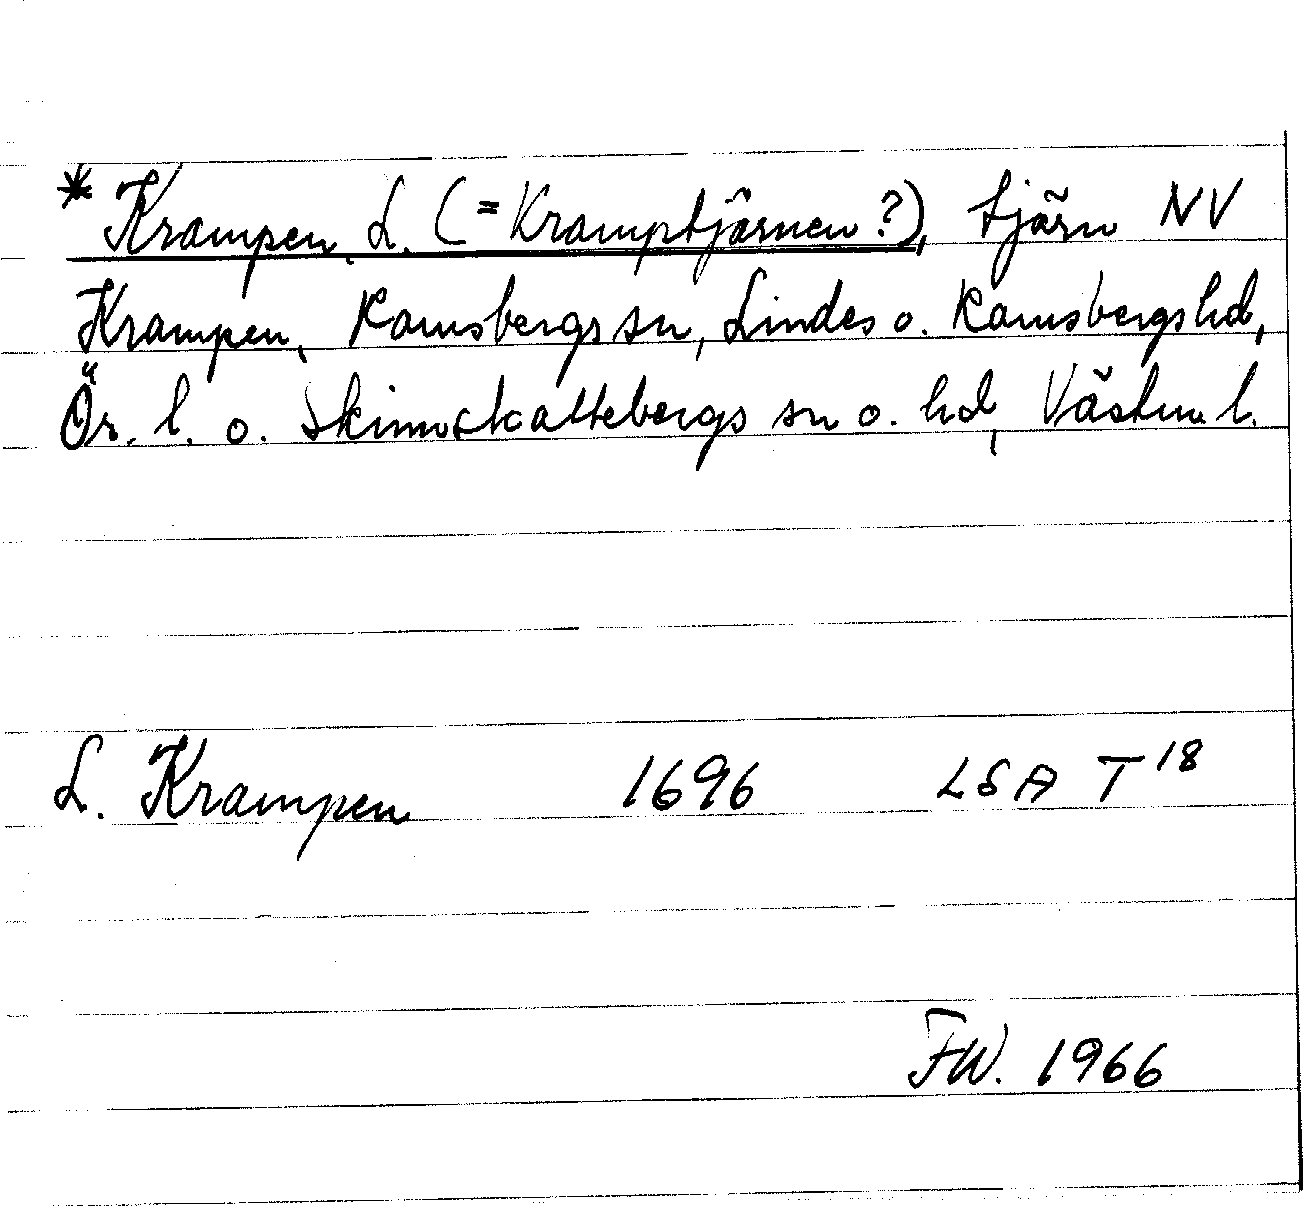 * Krampen, L. (= Kramptjärnen?), tjärn NV
Krampen, Ramsbergs sn, Lindes o. Ramsbergs hd,
Ör. l. o. Skinnskattebergs sn o. hd, Västm. l.
L. Krampen 1696 LSA T 18
FW. 1966